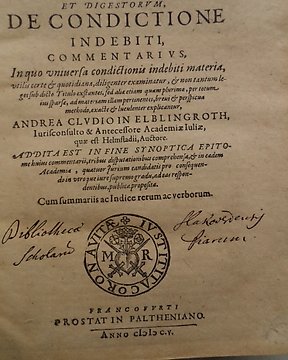 ET DIGESTORVM,
DE CONDICTIONE
INDEBITI,
COMMENTARIVS,
In quo vniuersa condictionis indebiti materia,
vtilis certe & quotidiana, diligenter examinatur, & non tantum le-
ges sub dicto Titulo exstantes, sed aliæ etiam quam plurimæ, per totum
ius sparsæ, ad materiam istam pertinentes, breui & perspicua
methodo, exacte & luculenter explicantur,
ANDREA CLVDIO IN ELBLINGROTH,
Iurisconsulto & Antecessore Academiæ Iuliæ,
quæ est Helmstadii, Auctore.
ADDITA EST IN FINE SYNOPTICA EPITO-
me huius commentarii, tribus disputationibus comprehensa, & in eadem
Academia, quatuor Iurium candidatis pro consequen-
do in vtroque iure supremo gradu, ad eas respon-
dentibus, publice proposita.
Cum summariis ac Indice rerum ac verborum.
Bibliotheca
Scholarum
IVSTITIA CORONA VITÆ
M R
Piarum
FRANCOFVRTI
PROSTAT IN PALTHENIANO.
ANNO CIƆ IƆ C. V.